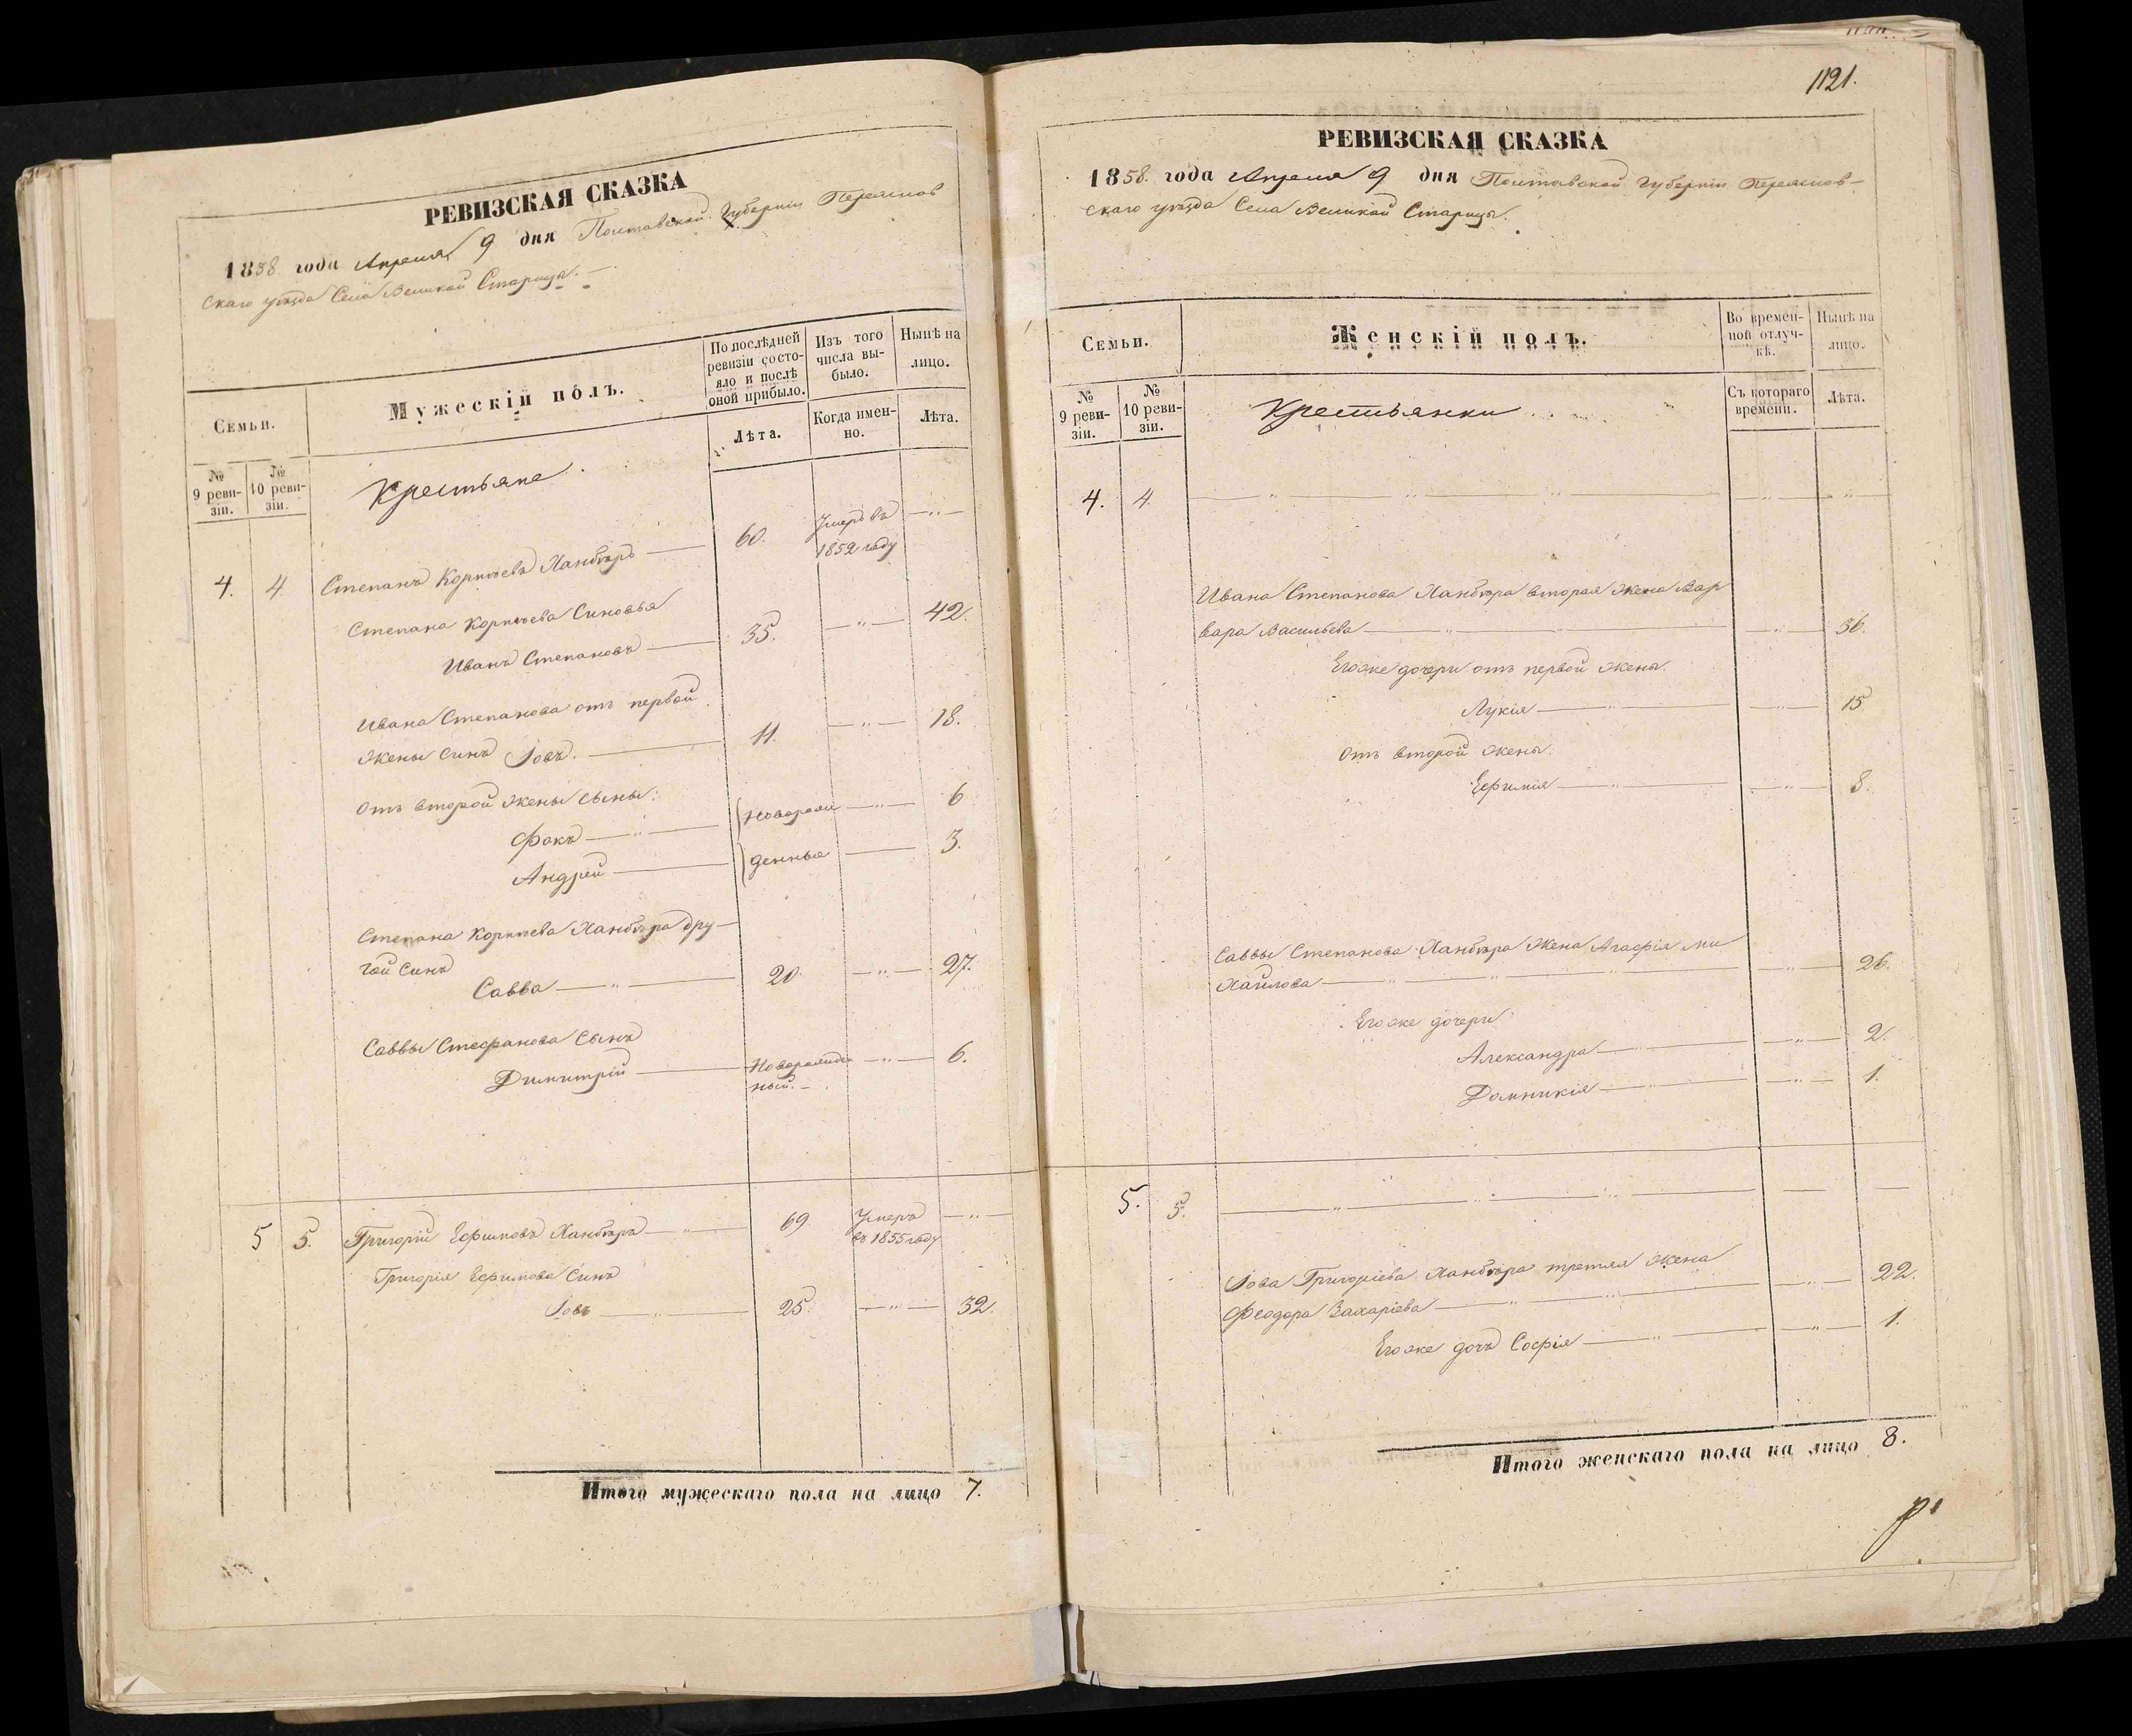 РЕВИЗСКАЯ СКАЗКА
1858 года Апреля 9 дня Полтавской Губернии Переяслов
скаго уѣзда Села Великой Старицы. —
Семьи.
Мужескій полъ.
По послѣдней ревизіи состояло и послѣ оной прибыло.
Изъ того числа выбыло.
Нынѣ на лицо.
№ 9 ревизіи.
№ 10 ревизіи.
Лѣта.
Когда именно.
Лѣта.
Крестьяне.
4. 4 Степанъ Корнѣевъ Ханбѣръ — 60. Умеръ въ 1852 году — " —
Степана Корнѣева Синовья
Иванъ Степановъ — 35. — " — 42.
Ивана Степанова отъ первой
жены Синъ Іовъ. — 11. — " — 18.
Отъ второй жены Сыны:
Фокъ — " — Новорож — " — 6
Андрей — денные — 3.
Степана Корнѣева Ханбѣра дру—
гой Синъ
Савва — " — 20. — " — 27.
Саввы Стефанова Сынъ
Димитрій — Новорожден ный. — — " — 6.
5 5. Григорій Ефимовъ Ханбѣръ — " — 69 Умеръ въ 1855 году — " —
Григорія Ефимова Синъ
Іовъ — " — 25. — " — 32.
Итого мужескаго пола на лицо 7.
1121.
РЕВИЗСКАЯ СКАЗКА
1858. года Апреля 9 дня Полтавской Губерніи Переяслов—
скаго уѣзда Села Великой Старицы.
Семьи.
Женскій полъ.
Во временной отлучкѣ.
Нынѣ на лицо.
№ 9 ревизіи.
№ 10 ревизіи.
Съ котораго времени.
Лѣта.
Крестьянки
4. 4. — " — " — " — — " — — " —
Ивана Степанова Ханбѣра вторая жена Вар
вара Васильева — " — " — — " — 36.
Егоже дочери отъ первой жены.
Лукія — " — — " — 15
Отъ второй жены.
Ефимія — " — — " — 8.
Саввы Степанова Ханбѣра Жена Агафія Ми
хайлова — " — " — " — — " — 26.
Егоже дочери
Александра — " — — " — 2.
Домникія — " — — " — 1.
5. 5. — " — " — " — — —
Іова Григоріева Ханбѣра третяя жена
Феодора Захаріева — " — " — — " — 22.
Егоже дочь Софія — " — — " — 1.
Итого женскаго пола на лицо 8.